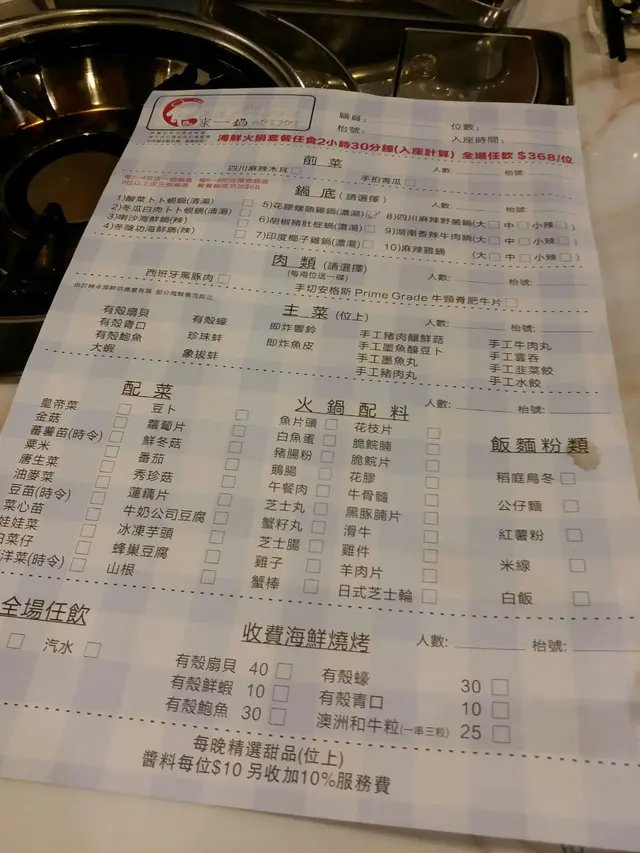 米一鍋
職員:
枱號: 位數:
入座時間:
海鮮火鍋套餐任食2小時30分鐘(入座計算) 全場任飲 $368/位
前菜
人數: 枱號:
四川麻辣木耳 手拍青瓜
鍋底(請選擇)
人數: 枱號:
1)酸菜卜卜蜆鍋(清湯) 5)花膠螺頭雞鍋(濃湯) 8)四川麻辣野菌鍋(大 中 小辣)
2)冬瓜白肉卜卜蜆鍋(清湯) 6)胡椒豬肚榄鍋(濃湯) 9)湖南香辣牛肉鍋(大 中 小辣)
3)喇沙海鮮鍋(辣) 7)印度椰子雞鍋(濃湯) 10)麻辣雞鍋 (大 中 小辣)
4)冬陰功海鮮鍋(辣)
肉類(請選擇)
(每兩位送一碟)
人數: 枱號:
西班牙黑豚肉 手切安格斯Prime Grade牛頸脊肥牛片
主菜(位上)
人數: 枱號:
有殼扇貝 有殼蠔 即炸響鈴 手工豬肉釀鮮菇 手工牛肉丸
有殼青口 珍珠蚌 即炸魚皮 手工墨魚釀豆卜 手工雲吞
有殼鮑魚 象拔蚌 手工墨魚丸 手工韮菜餃
大蝦 手工豬肉丸 手工水餃
配菜
皇帝菜 豆卜
金菇 蘿蔔片
蕎薯苗(時令) 鮮冬菇
粟米 番茄
唐生菜 秀珍菇
油麥菜 蓮藕片
豆苗(時令) 牛奶公司豆腐
菜心苗 冰凍芋頭
娃娃菜 蜂巢豆腐
白菜仔 山根
洋菜(時令)
火鍋配料
人數: 枱號:
魚片頭 花枝片
白魚蛋 脆脘腩
豬腸粉 脆脘片
鵝腸 花膠
午餐肉 牛骨髓
芝士丸 黑豚腩片
蟹籽丸 滑牛
芝士腸 雞件
雞子 羊肉片
蟹棒 日式芝士輪
飯麵粉類
稻庭烏冬
公仔麵
紅薯粉
米線
白飯
全場任飲
汽水
收費海鮮燒烤
人數: 枱號:
有殼扇貝 40 有殼蠔 30
有殼鮮蝦 10 有殼青口 10
有殼鮑魚 30 澳洲和牛粒(一串三粒) 25
每晚精選甜品(位上)
醬料每位$10 另收加10%服務費